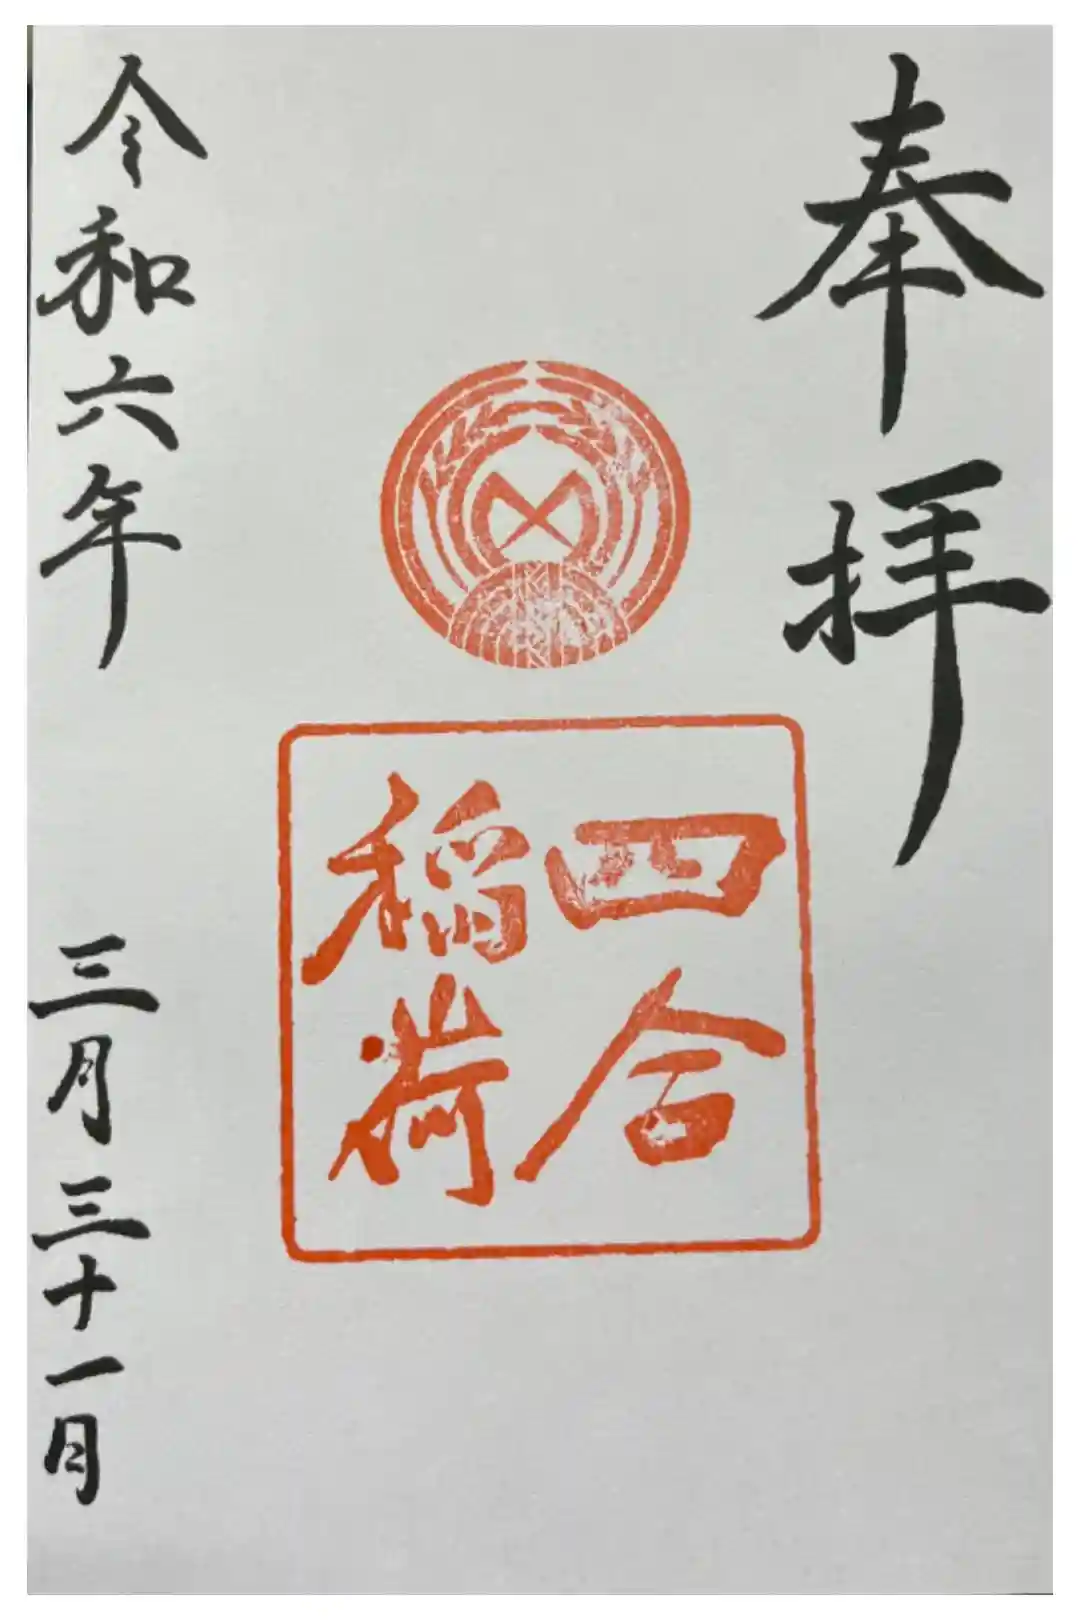 奉拝
四合
稲荷
令和六年 三月三十一日